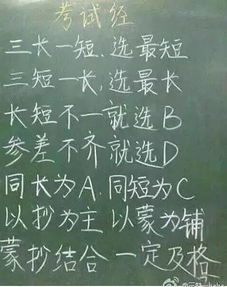 考试经
三长一短，选最短
三短一长，选最长
长短不一就选B
参差不齐就选D
同长为A，同短为C
以抄为主 以蒙为铺
蒙抄结合 一定及格